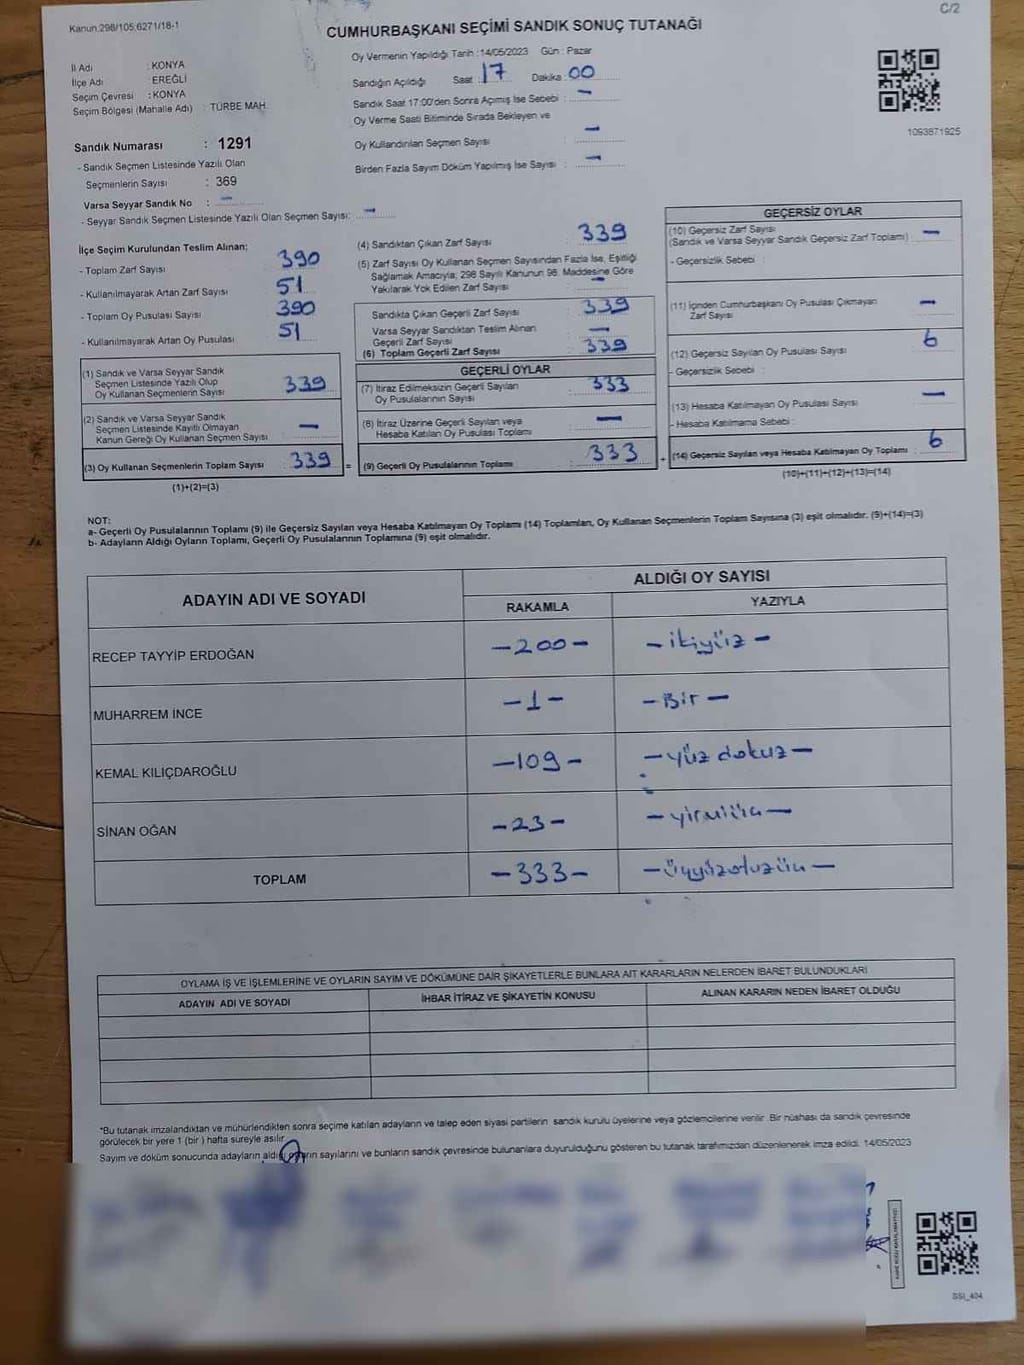 Kanun.298/105;6271/18-1
C/2
CUMHURBAŞKANI SEÇİMİ SANDIK SONUÇ TUTANAĞI
İl Adı : KONYA
İlçe Adı : EREĞLİ
Seçim Çevresi : KONYA
Seçim Bölgesi (Mahalle Adı) : TÜRBE MAH.
Oy Vermenin Yapıldığı Tarih : 14/05/2023 Gün : Pazar
Sandığın Açıldığı Saat : 17 Dakika : 00
Sandık Saat 17:00'den Sonra Açımış İse Sebebi : -
Oy Verme Saati Bitiminde Sırada Bekleyen ve
Oy Kullandırılan Seçmen Sayısı : -
Birden Fazla Sayım Döküm Yapılmış İse Sayısı : -
1093871925
Sandık Numarası : 1291
- Sandık Seçmen Listesinde Yazılı Olan
Seçmenlerin Sayısı : 369
Varsa Seyyar Sandık No : -
- Seyyar Sandık Seçmen Listesinde Yazılı Olan Seçmen Sayısı: -
İlçe Seçim Kurulundan Teslim Alınan:
- Toplam Zarf Sayısı 390
- Kullanılmayarak Artan Zarf Sayısı 51
- Toplam Oy Pusulası Sayısı 390
- Kullanılmayarak Artan Oy Pusulası 51
(1) Sandık ve Varsa Seyyar Sandık
Seçmen Listesinde Yazılı Olup
Oy Kullanan Seçmenlerin Sayısı : 339
(2) Sandık ve Varsa Seyyar Sandık
Seçmen Listesinde Kayıtlı Olmayan
Kanun Gereği Oy Kullanan Seçmen Sayısı : -
(3) Oy Kullanan Seçmenlerin Toplam Sayısı : 339
(1)+(2)=(3)
(4) Sandıktan Çıkan Zarf Sayısı : 339
(5) Zarf Sayısı Oy Kullanan Seçmen Sayısından Fazla İse, Eşitliği
Sağlamak Amacıyla; 298 Sayılı Kanunun 98. Maddesine Göre
Yakılarak Yok Edilen Zarf Sayısı : -
Sandıkta Çıkan Geçerli Zarf Sayısı : 339
Varsa Seyyar Sandıktan Teslim Alınan
Geçerli Zarf Sayısı : -
(6) Toplam Geçerli Zarf Sayısı : 339
GEÇERLİ OYLAR
(7) İtiraz Edilmeksizin Geçerli Sayılan
Oy Pusulalarının Sayısı : 333
(8) İtiraz Üzerine Geçerli Sayılan veya
Hesaba Katılan Oy Pusulası Toplamı : -
= (9) Geçerli Oy Pusulalarının Toplamı : 333 +
GEÇERSİZ OYLAR
(10) Geçersiz Zarf Sayısı
(Sandık ve Varsa Seyyar Sandık Geçersiz Zarf Toplamı) : -
- Geçersizlik Sebebi :
(11) İçinden Cumhurbaşkanı Oy Pusulası Çıkmayan
Zarf Sayısı : -
(12) Geçersiz Sayılan Oy Pusulası Sayısı : 6
- Geçersizlik Sebebi :
(13) Hesaba Katılmayan Oy Pusulası Sayısı : -
- Hesaba Katılmama Sebebi :
(14) Geçersiz Sayılan veya Hesaba Katılmayan Oy Toplamı : 6
(10)+(11)+(12)+(13)=(14)
NOT:
a- Geçerli Oy Pusulalarının Toplamı (9) ile Geçersiz Sayılan veya Hesaba Katılmayan Oy Toplamı (14) Toplamları, Oy Kullanan Seçmenlerin Toplam Sayısına (3) eşit olmalıdır. (9)+(14)=(3)
b- Adayların Aldığı Oyların Toplamı, Geçerli Oy Pusulalarının Toplamına (9) eşit olmalıdır.
ADAYIN ADI VE SOYADI
ALDIĞI OY SAYISI
RAKAMLA YAZIYLA
RECEP TAYYİP ERDOĞAN -200- -ikiyüz-
MUHARREM İNCE -1- -Bir-
KEMAL KILIÇDAROĞLU -109- -yüz dokuz-
SİNAN OĞAN -23- -yirmiüç-
TOPLAM -333- -üçyüzotuzüç-
OYLAMA İŞ VE İŞLEMLERİNE VE OYLARIN SAYIM VE DÖKÜMÜNE DAİR ŞİKAYETLERLE BUNLARA AİT KARARLARIN NELERDEN İBARET BULUNDUKLARI
ADAYIN ADI VE SOYADI İHBAR İTİRAZ VE ŞİKAYETİN KONUSU ALINAN KARARIN NEDEN İBARET OLDUĞU
*Bu tutanak imzalandıktan ve mühürlendikten sonra seçime katılan adayların ve talep eden siyasi partilerin sandık kurulu üyelerine veya gözlemcilerine verilir. Bir nüshası da sandık çevresinde
görülecek bir yere 1 (bir ) hafta süreyle asılır.
Sayım ve döküm sonucunda adayların aldığı oyların sayılarını ve bunların sandık çevresinde bulunanlara duyurulduğunu gösteren bu tutanak tarafımızdan düzenlenerek imza edildi. 14/05/2023
SSI_404